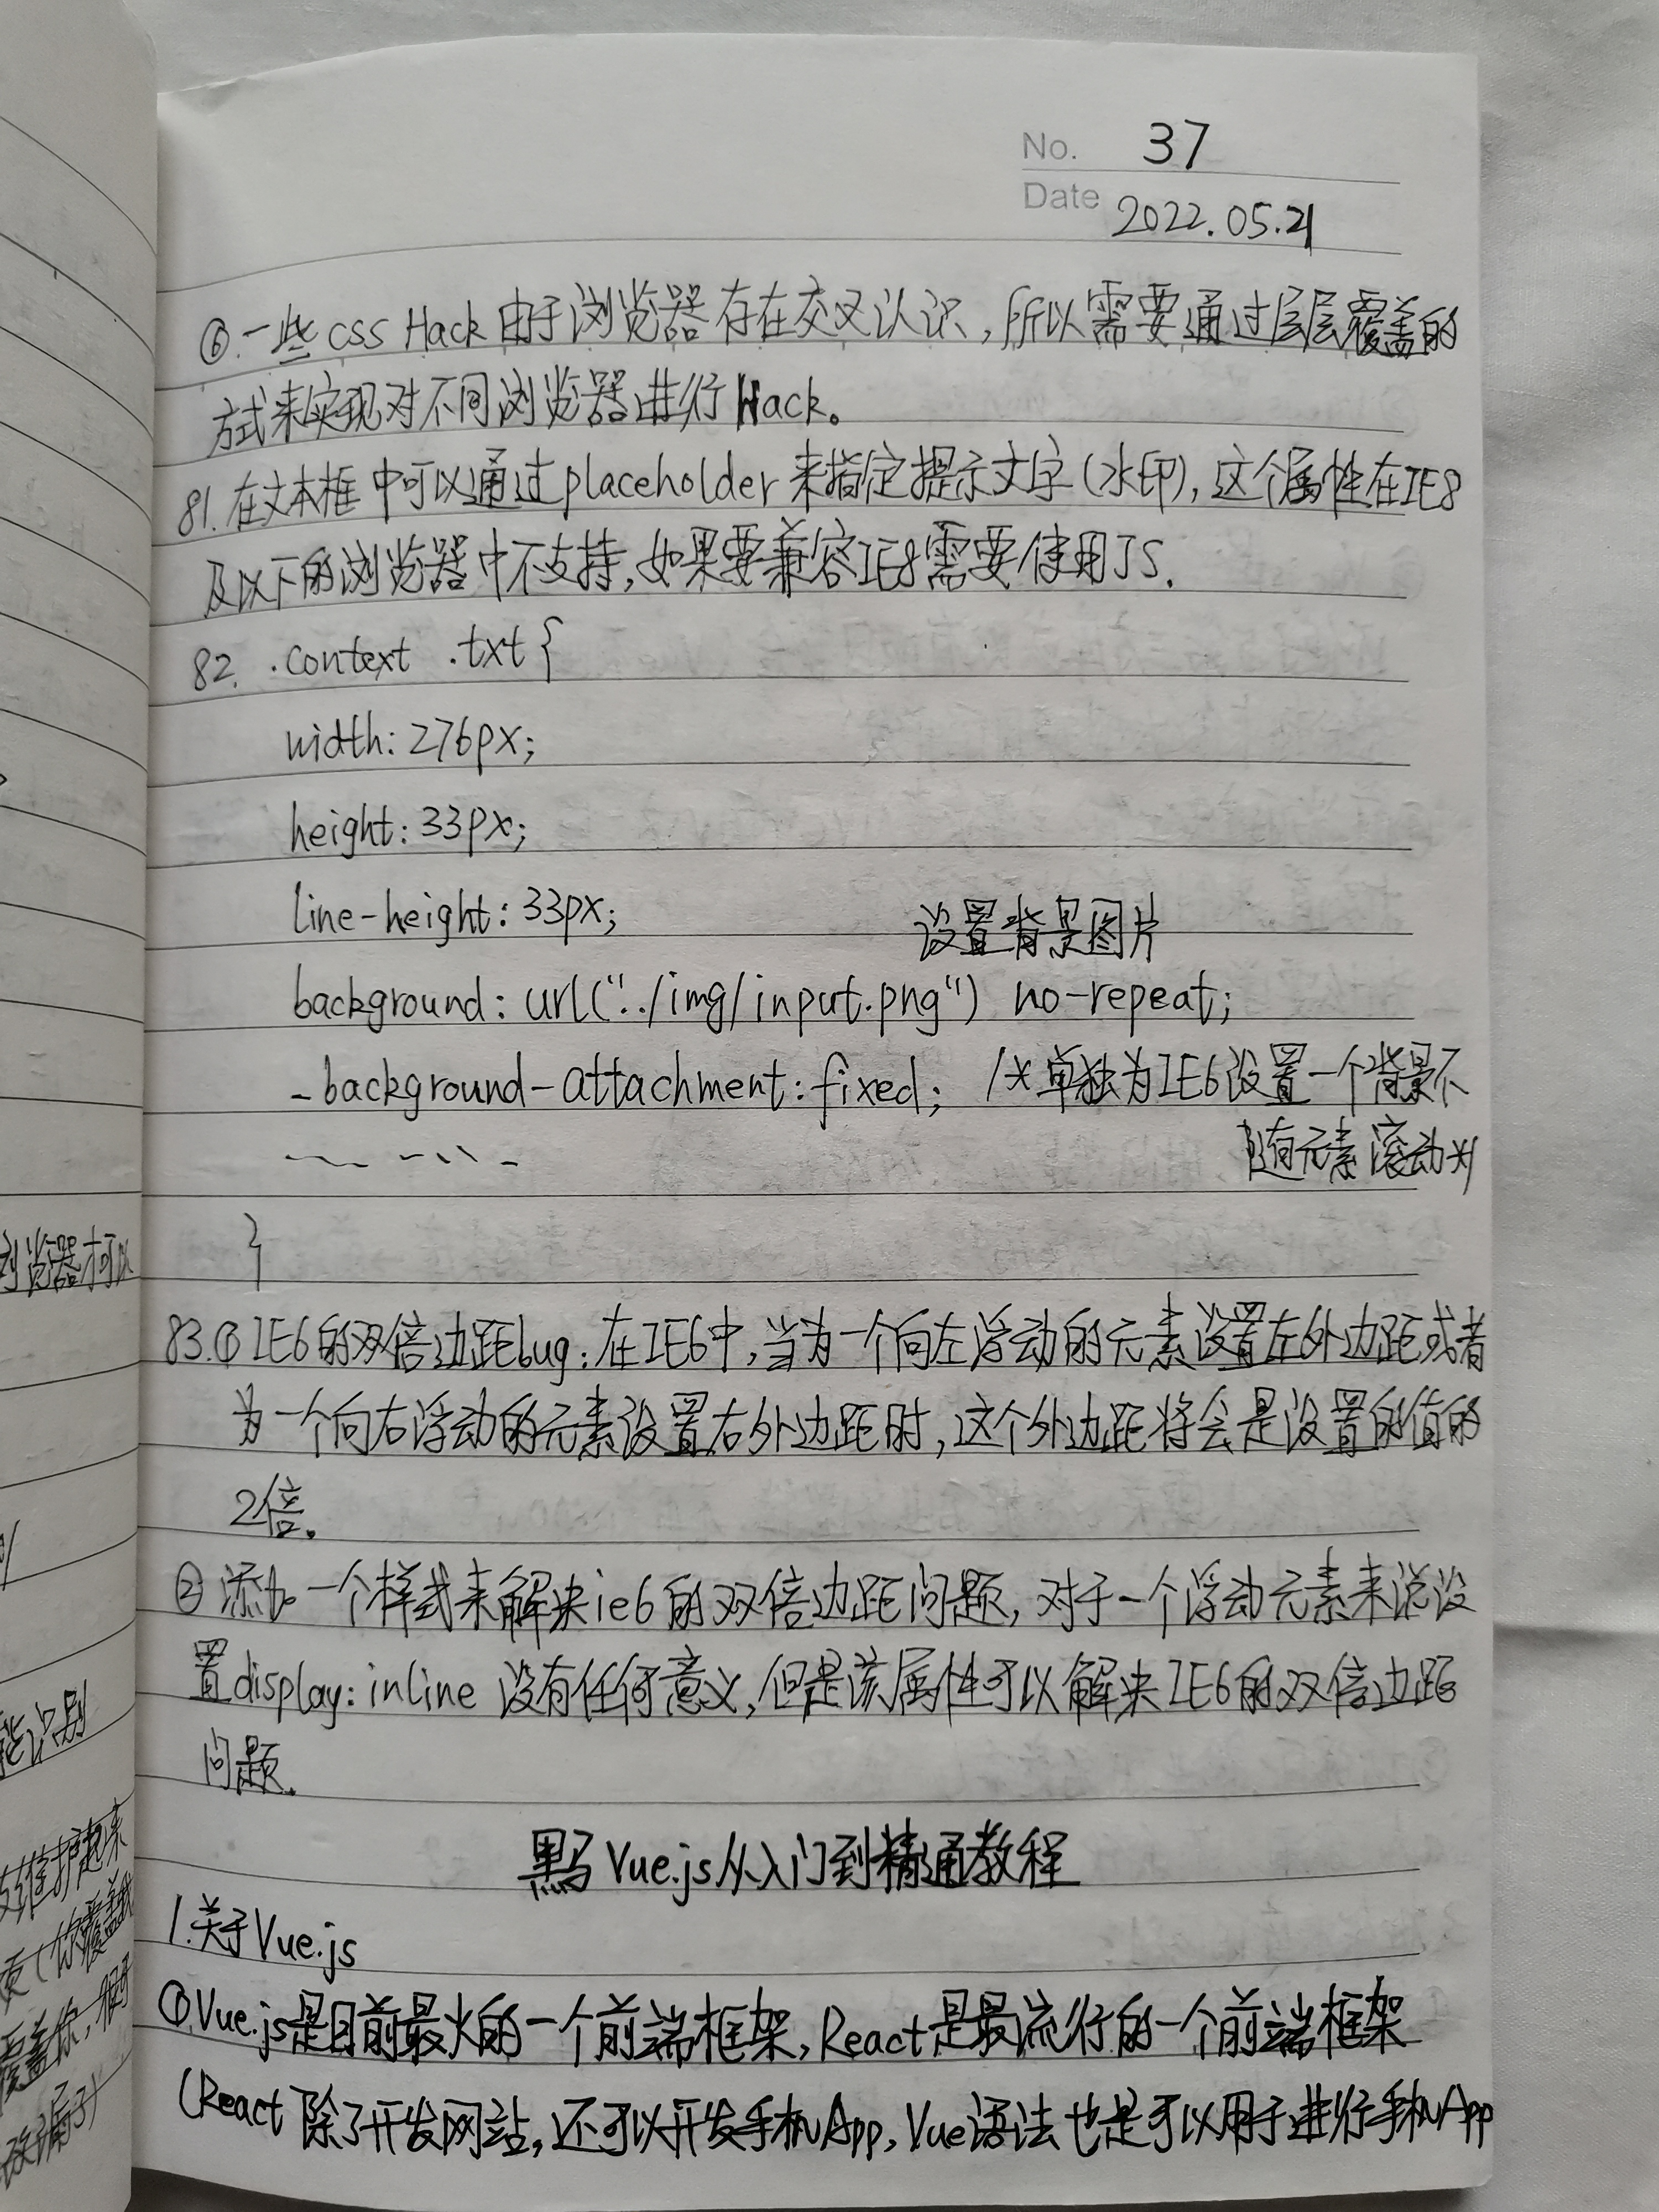 No. 37
Date 2022.05.21
⑥.一些CSS Hack由于浏览器存在交叉认识,所以需要通过层层覆盖的
方式来实现对不同浏览器进行Hack。
81.在文本框中可以通过placeholder来指定提示文字(水印),这个属性在IE8
及以下的浏览器中不支持,如果要兼容IE8需要使用JS.
82. .context .txt{
width:276px;
height:33px;
line-height:33px;
设置背景图片
background:url("../img/input.png") no-repeat;
_background-attachment:fixed; /*单独为IE6设置一个背景不
随元素滚动*/
}
83.①IE6的双倍边距bug:在IE6中,当为一个向左浮动的元素设置左外边距或者
为一个向右浮动的元素设置右外边距时,这个外边距将会是设置的值的
2倍。
②添加一个样式来解决ie6的双倍边距问题,对于一个浮动元素来说设
置display:inline 没有任何意义,但是该属性可以解决IE6的双倍边距
问题.
黑马Vue.js从入门到精通教程
1.关于Vue.js
①Vue.js是目前最火的一个前端框架,React是最流行的一个前端框架
(React除了开发网站,还可以开发手机App,Vue语法也是可以用于进行手机App
浏览器才可以
能识别
维护起来
(你覆盖我
覆盖你,